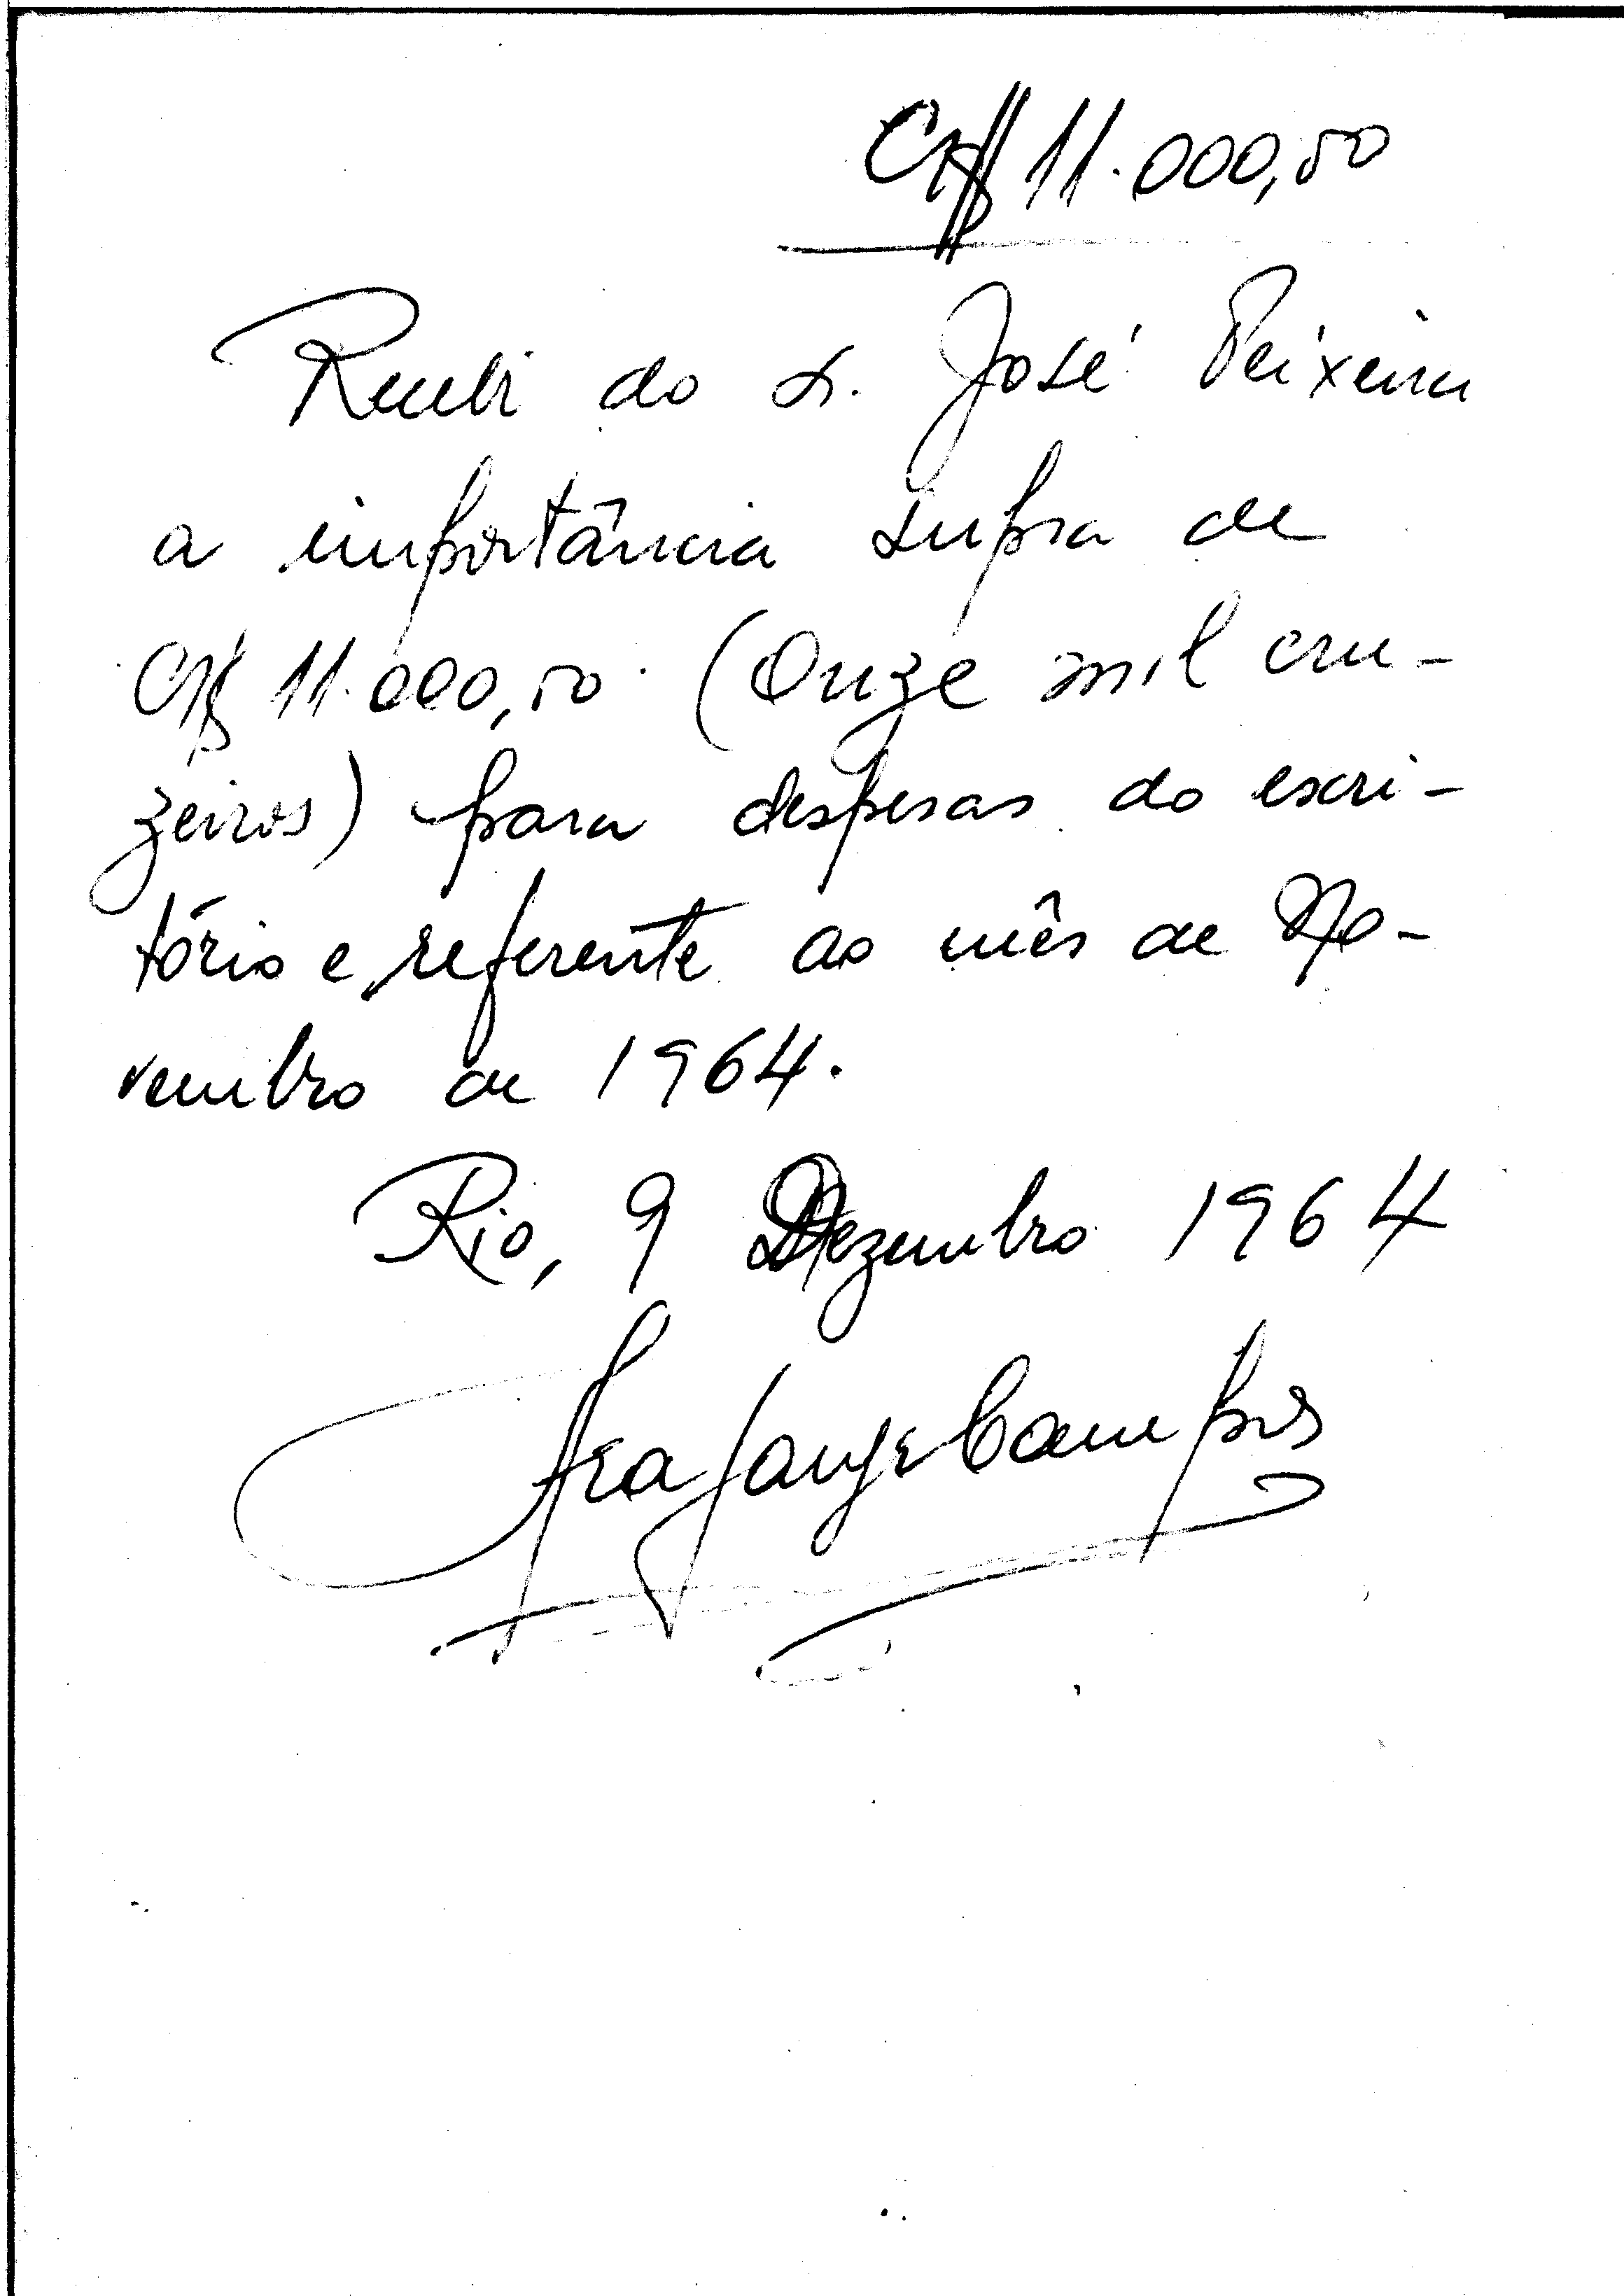 CR$ 11.000,00
Recebi do Sr. José Peixeira
a importância supra de
CR$ 11.000,00 (Onze mil cru-
zeiros) para despesas do escri-
tório e referente ao mês de No-
vembro de 1964.
Rio, 9 Dezembro 1964